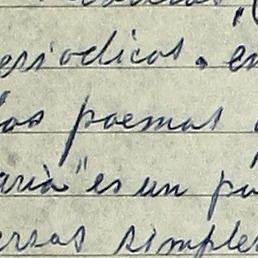 eriodicos. en
los poemas
aria" es un po
ersas simples